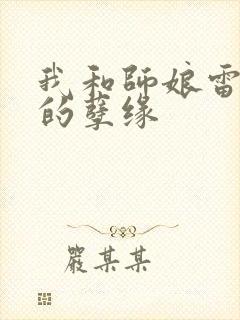 我和師娘雷
的孽缘
嚴某某